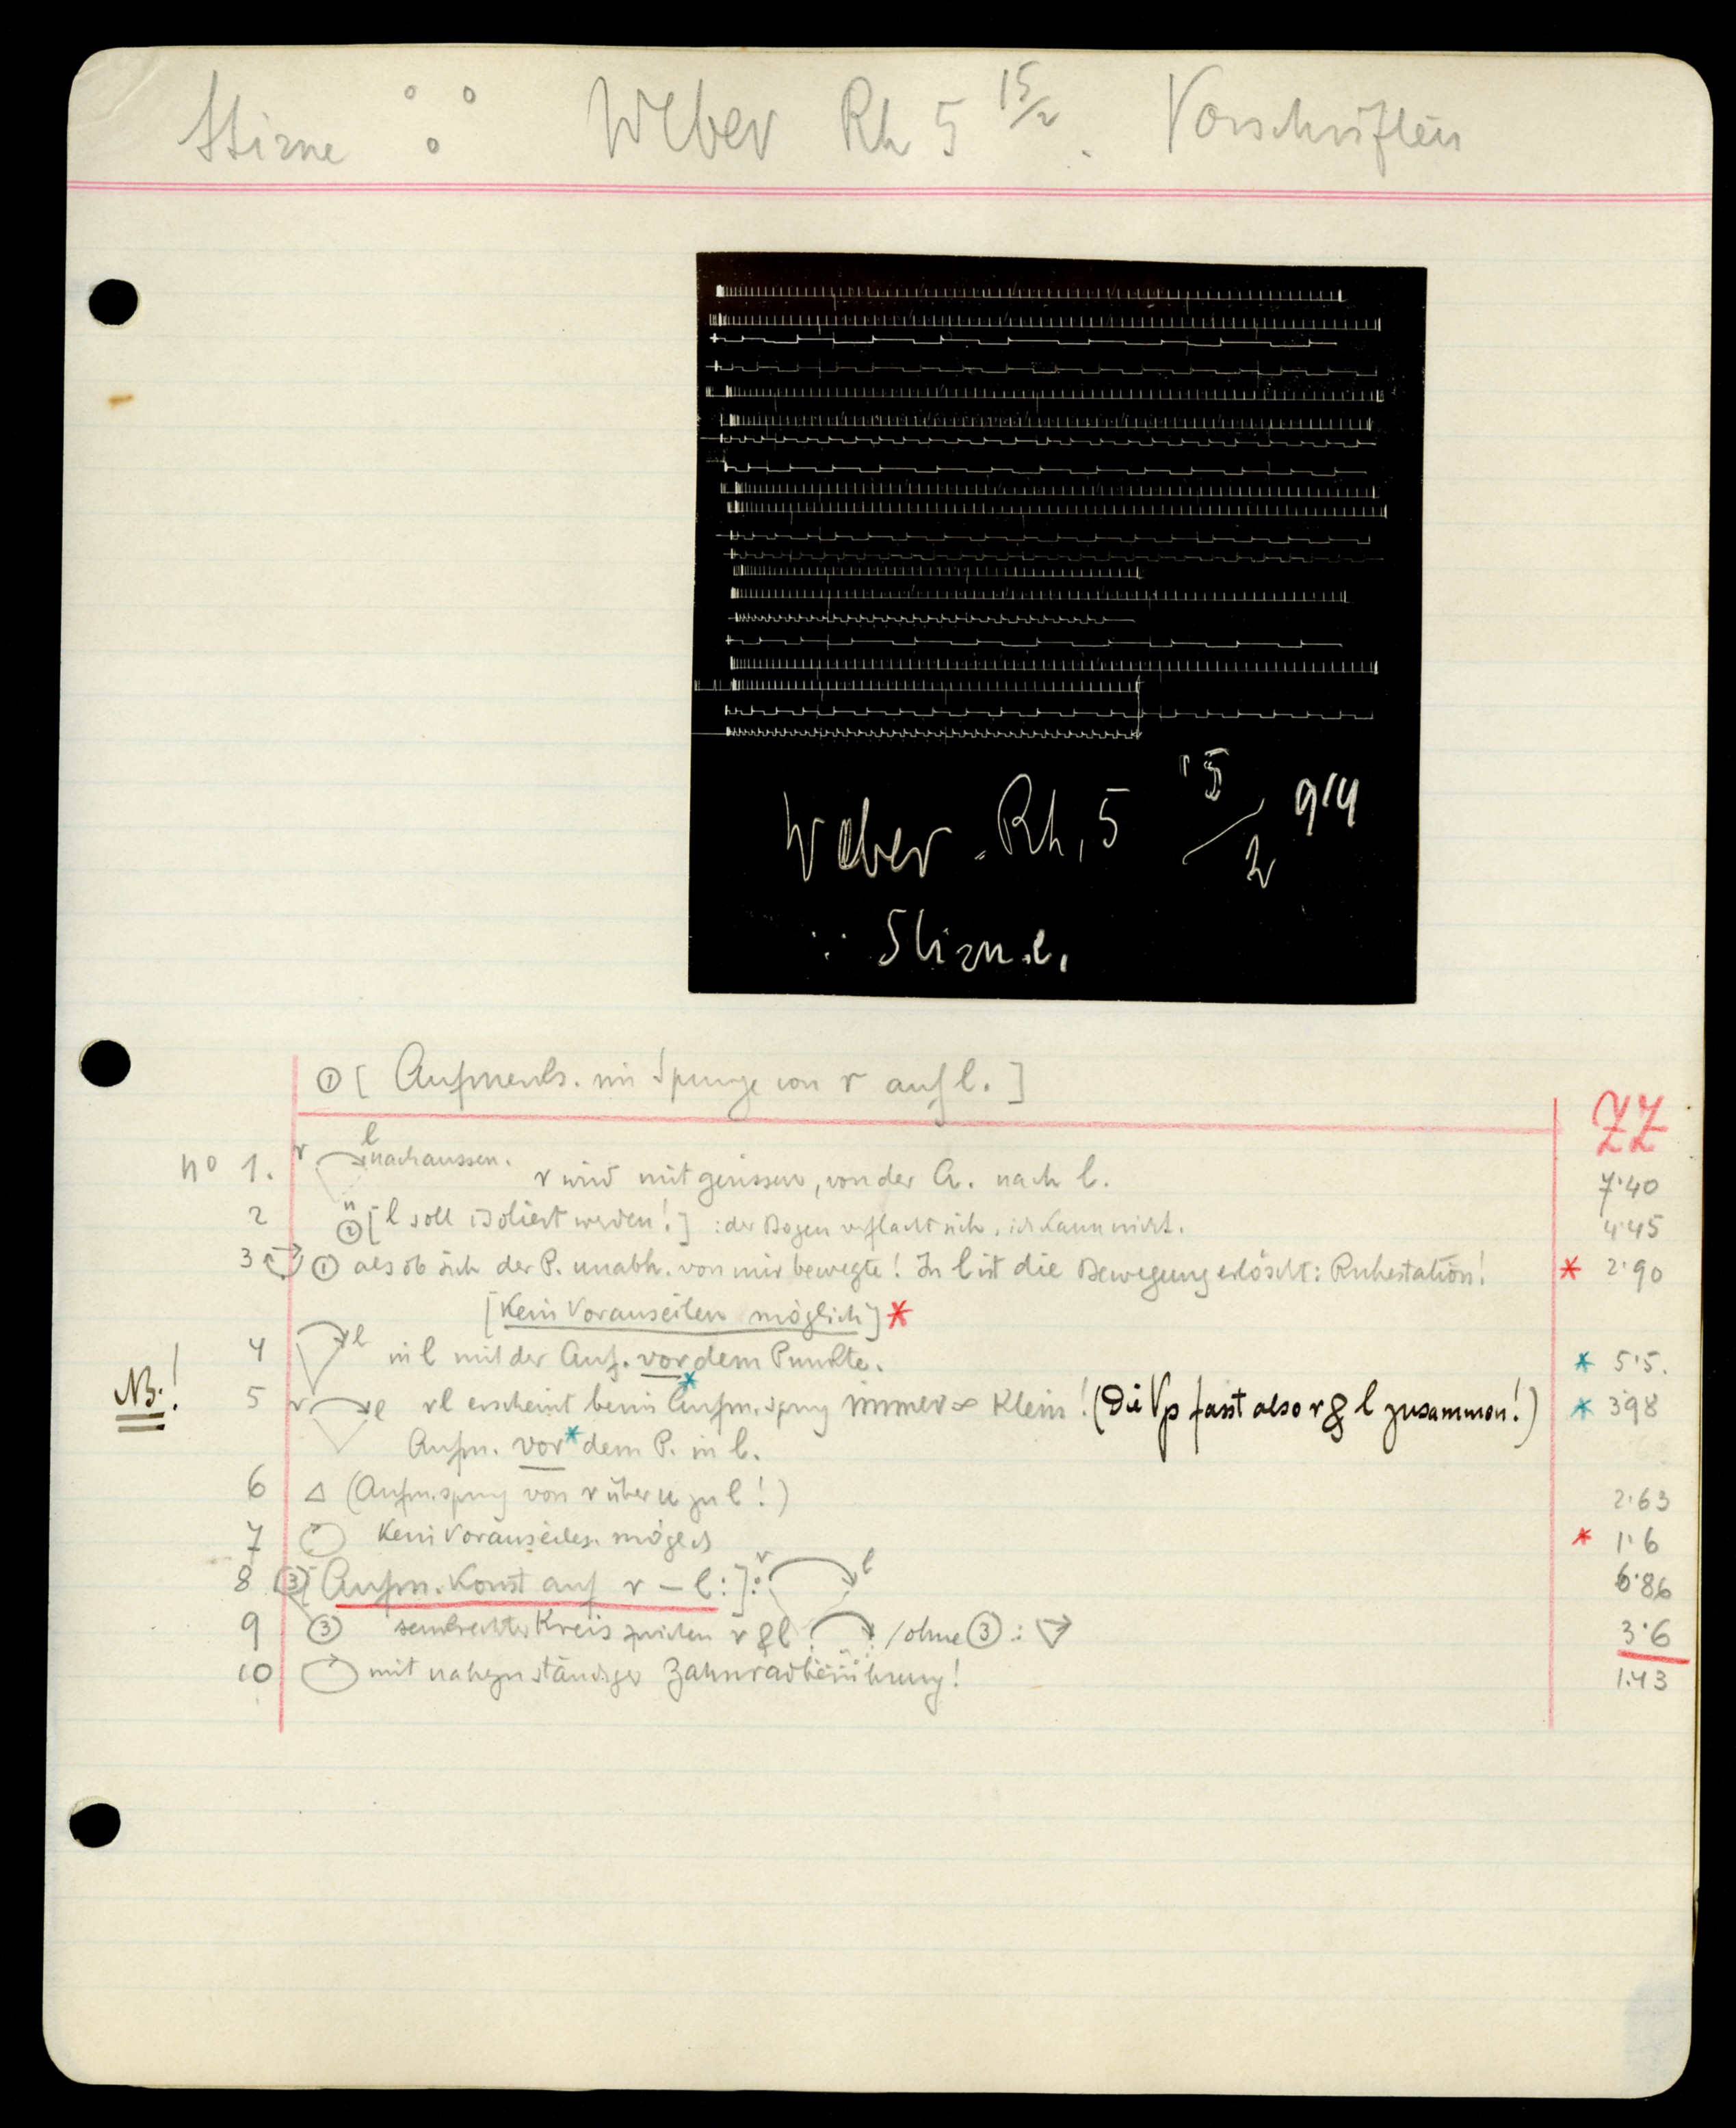 Stirne Weber Rh 5 15/2. Vorschriften
Weber. Rh, 5 15/2 914
Stirne,
① [ Aufmerks. im Sprunge von r auf l. ]
ZZ
No 1. r l nach aussen. r wird mitgerissen, von der A. nach l. 7·40
2 ② [ l soll isoliert werden! ] : der Bogen verflacht sich, ich kann nicht. 4·45
3 ① als ob sich der P. unabh. von mir bewegte! In l ist die Bewegung erlöscht: Ruhestation! * 2·90
[ Kein Vorauseilen möglich ] *
4 l in l mit der Auf. vor dem Punkte. * 5·5.
NB.!
5 r l rl erscheint beim Aufm.sprung immer klein! (Die Vp fasst also r & l zusammen!) * 3·98
Aufm. vor* dem P. in l.
6 △ (Aufm.sprung von r über u zu l!) 2·63
7 Kein Vorauseilen möglich * 1·6
8 ③ [ Aufm. Konst auf r – l: ]: r l 6·86
9 ③ senkrechter Kreis zwischen r & l / ohne ③ : 3·6
10 mit nahezu ständiger Zahnradberührung! 1·43